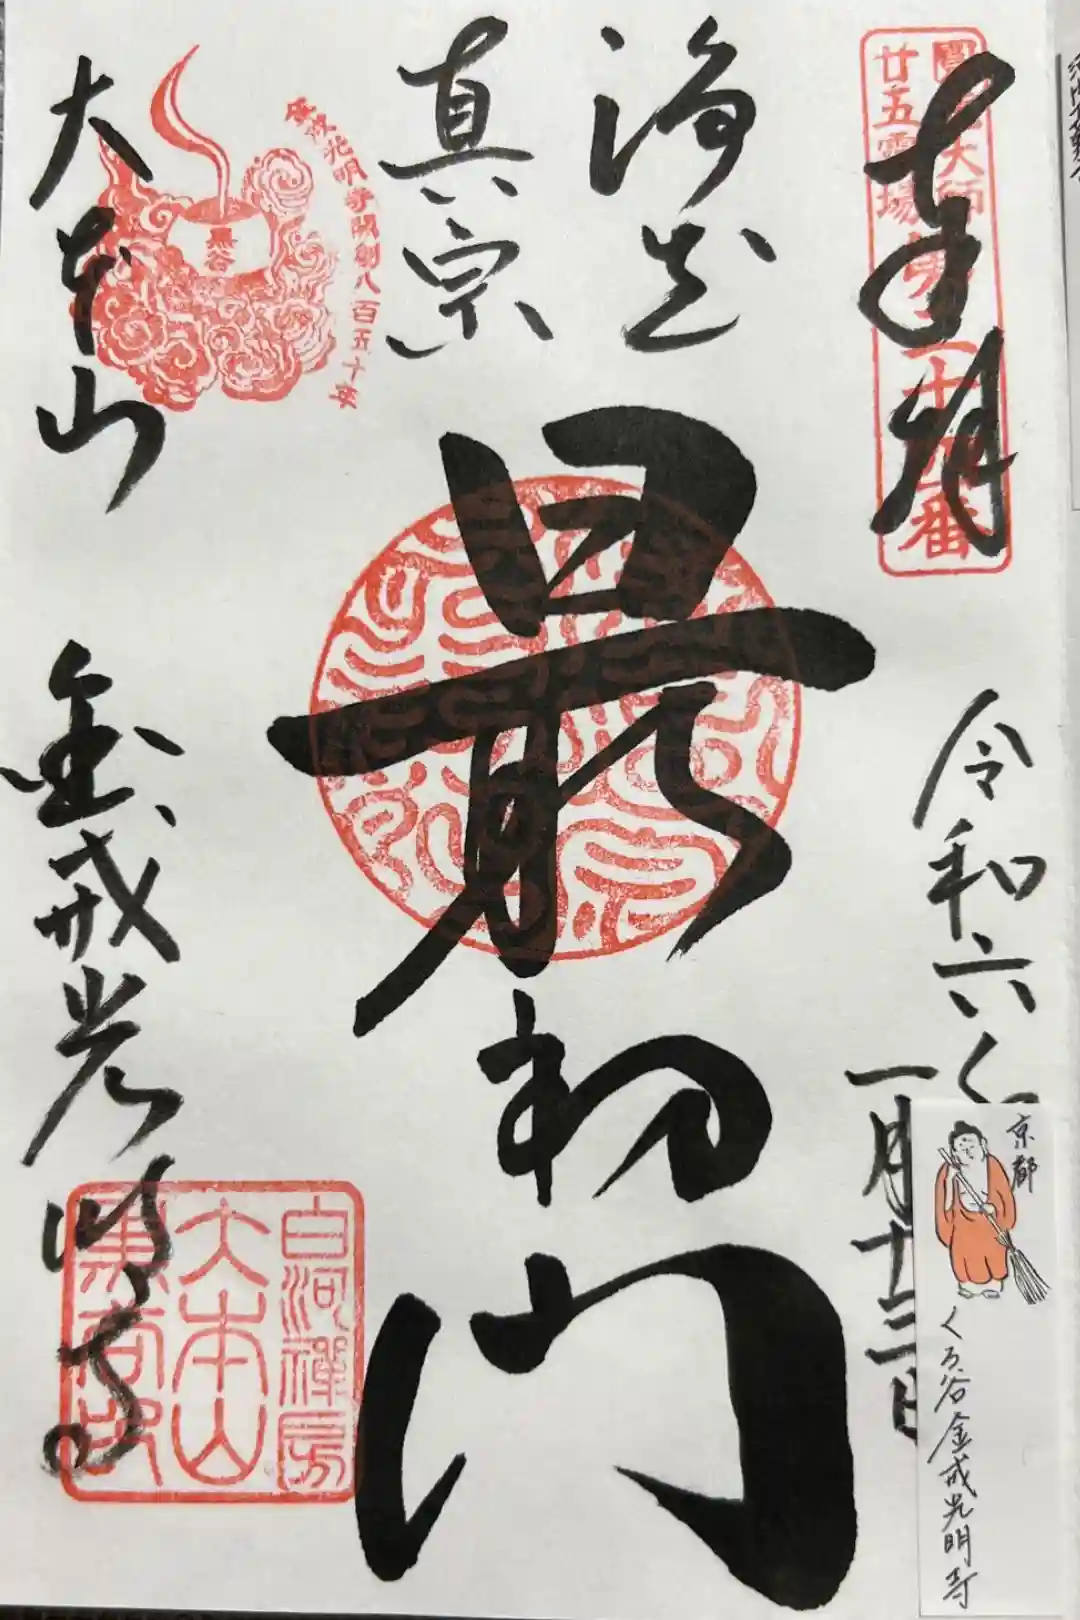 奉拝
圓光大師
廿五霊場第二十四番
令和六年
一月十三日
浄土
真宗
最初門
大本山
金戒光明寺
金戒光明寺開創八百五十年
黒谷
白河禅房
大本山
京都
くろ谷金戒光明寺